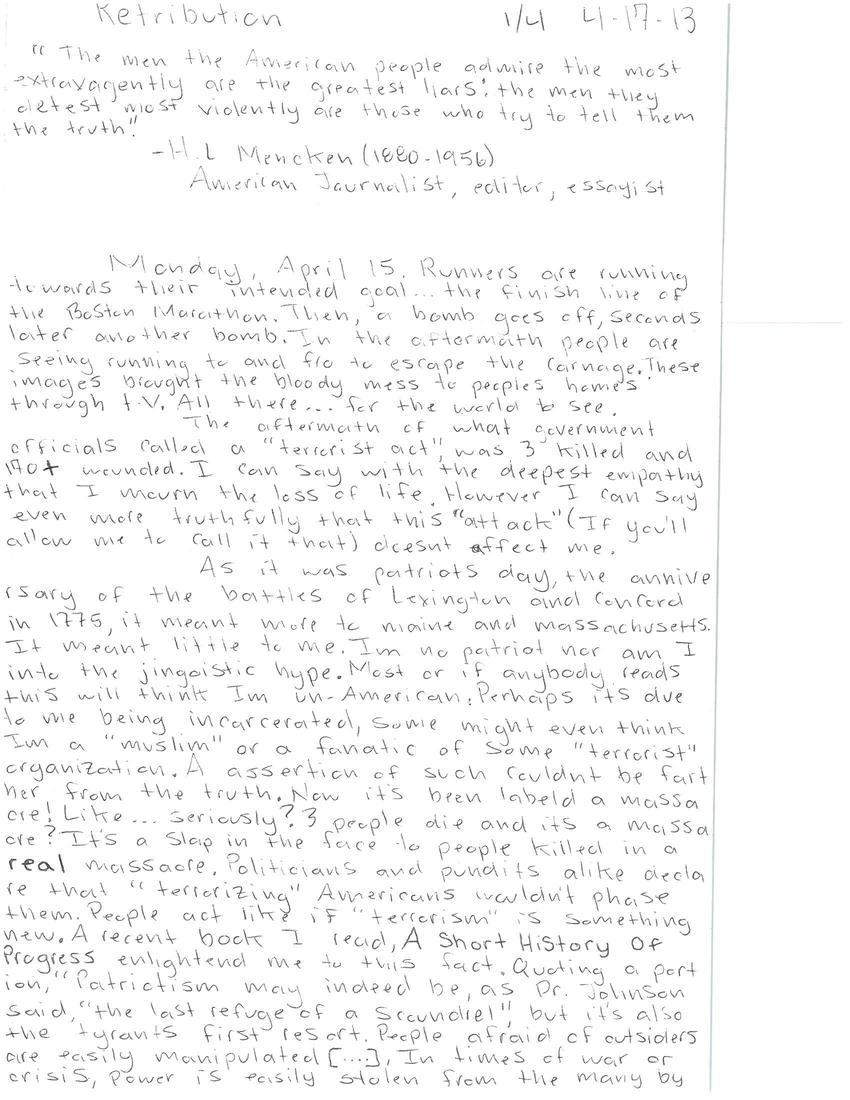 Retribution 1/4 4-17-13
" The men the American people admire the most
extravagently are the greatest liars: the men they
detest most violently are those who try to tell them
the truth."
-H.L Mencken (1880-1956)
American Journalist, editor, essayist
Monday, April 15. Runners are running
towards their intended goal... the finish line of
the Boston Marathon. Then, a bomb goes off, seconds
later another bomb. In the aftermath people are
seeing running to and fro to escape the carnage. These
images brought the bloody mess to peoples homes
through t.V. All there... for the world to see.
The aftermath of what government
officials called a "terrorist act", was 3 killed and
170+ wounded. I can say with the deepest empathy
that I mourn the loss of life. However I can say
even more truthfully that this "attack" (If you'll
allow me to call it that) doesnt affect me.
As it was patriots day, the annive
rsary of the battles of Lexington and Concord
in 1775, it meant more to maine and massachusetts.
It meant little to me. Im no patriot nor am I
into the jingoistic hype. Most or if anybody reads
this will think Im un-American. Perhaps its due
to me being incarcerated, some might even think
Im a "muslim" or a fanatic of some "terrorist"
organization. A assertion of such couldnt be furt
her from the truth. Now it's been labeld a massa
cre! Like... seriously? 3 people die and its a massa
cre? It's a slap in the face to people killed in a
real massacre. Politicians and pundits alike decla
re that "terrorizing" Americans wouldn't phase
them. People act like if "terrorism" is something
new. A recent book I read, A Short History Of
Progress enlightend me to this fact. Quoting a port
ion, "Patriotism may indeed be, as Dr. Johnson
said, "the last refuge of a scoundrel", but it's also
the tyrants first resort. People afraid of outsiders
are easily manipulated [....], In times of war or
crisis, power is easily stolen from the many by